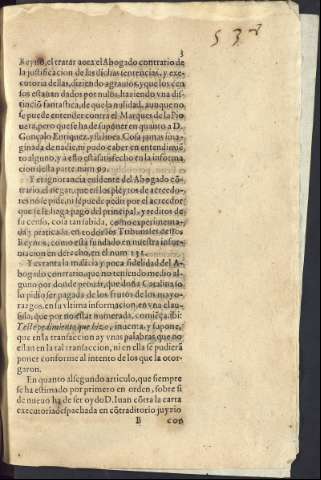 538
3
Reyno, el tratar aora el Abogado contrario de
la justificacion de las dichas sentencias, y exe-
cutoria dellas, diziendo agrauios, y que los cen
sos estauan dados por nulos, haziendo vna dis-
tinciõ fantastica, de que la nulidad, aunque no
se puede entender contra el Marques de la Pio
uera, pero que se ha de suponer en quanto a D.
Gonçalo Enriquez, y su hijos. Cosa jamas ima
ginada de nadie, ni pudo caber en entendimiẽ
to alguno, y a esto està satisfecho en la informa
cion desta parte, num. 99.
Y es ignorancia euidente del Abogado cõ-
trario, el negar, que en los pleytos de acreedo-
res no se pide, ni se puede pedir por el acreedor
que se le haga pago del principal, y reditos de
su censo, cosa tan sabida, como experimenta-
da, y praticada en todos los Tribunales destos
Reynos, como està fundado en nuestra infor-
macion en derecho, en el num. 131.
Y es tanta la malicia y poca fidelidad del A-
bogado contrario, que no teniendo medio al-
guno por donde prouar, que doña Catalina so
lo pidio ser pagada de los frutos de los mayo-
razgos, en su vltima informacion, en vna clau-
sula, que por no estar numerada, comiẽça, ibi:
Y este pedimiento que hizo, inuenta, y supone,
que en la transaccion ay vnas palabras, que no
estan en la tal transaccion, ni en ella se pudierã
poner conforme al intento de los que la otor-
garon.
En quanto al segundo articulo, que siempre
se ha estimado por primero en orden, sobre si
de nueuo ha de ser oydo D. Iuan cõtra la carta
executoria despachada en cõtraditorio juyzio
B
con